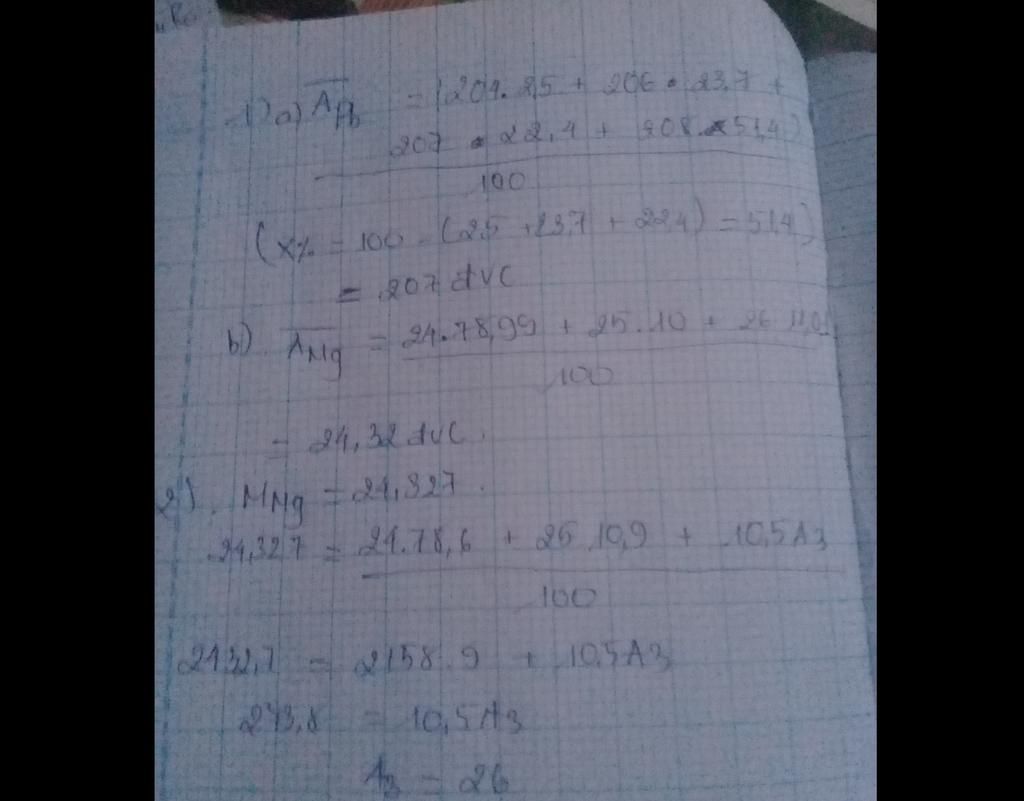 1) a) A̅Pb = (204.2,5 + 206.23,7 +
207.22,4 + 208.51,4)
100
(x% = 100 - (2,5 + 23,7 + 22,4) = 51,4)
= 207 đvC
b) A̅Mg = 24.78,99 + 25.10 + 26.11,01
100
= 24,32 đvC.
2). MMg = 24,327.
24,327 = 24.78,6 + 25.10,9 + 10,5A3
100
2432,7 = 2158.9 + 10,5A3
273,8 = 10,5A3
A3 = 26